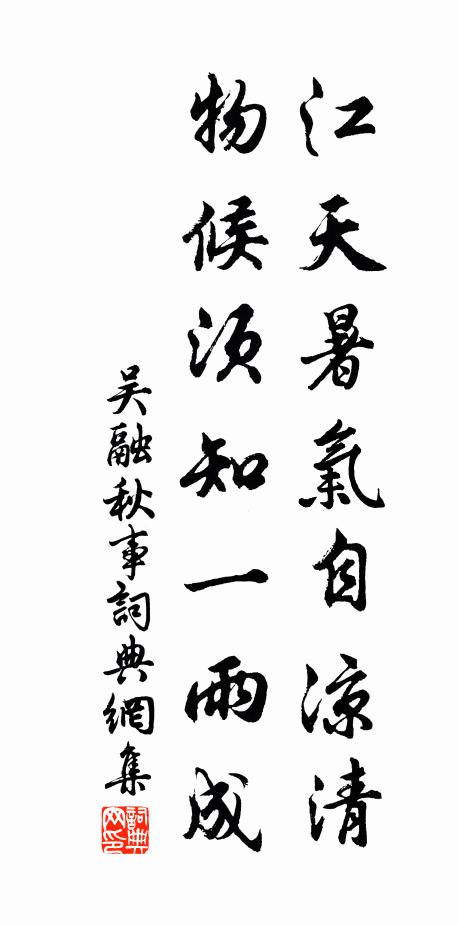 江天暑氣自涼清
物候須知一雨成
吳融秋事詞典網集
詞典網印